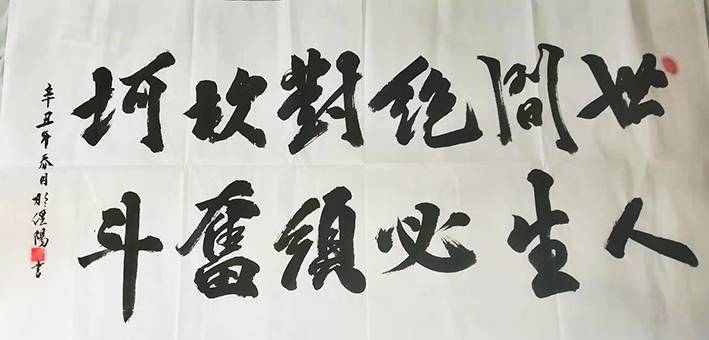 世間绝對坎坷
人生必須奮斗
辛丑年春月於陽書